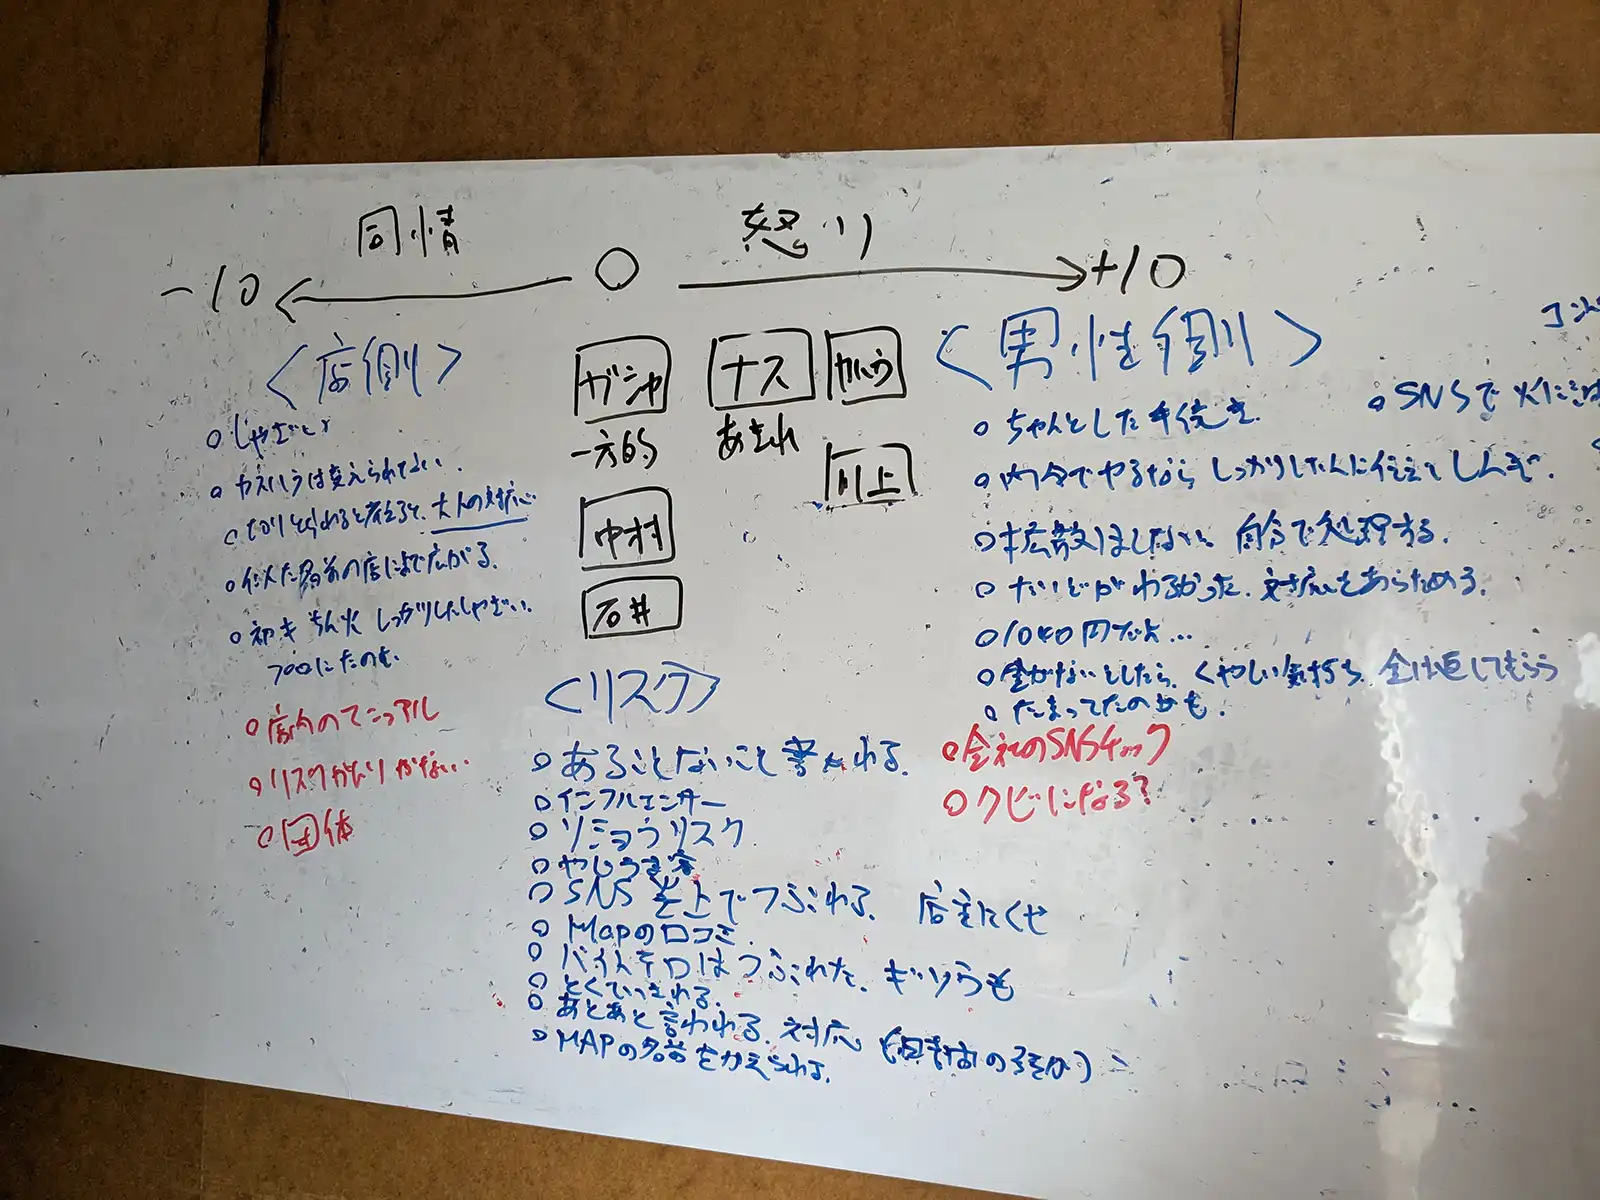 同情 怒り
-10 0 +10
<店側>
○しゃざい
○カスハラは変えられてない.
大人の対応
○似た名前の店にまで広がる.
しっかりしたしゃざい.
○店内のマニュアル
○リスクがない..
○団体
ガシャ ナス
一方的 あきれ
川上
中村
石井
<リスク>
○あることないこと書かれる.
○インフルエンサー
○ソショウリスク
○やじうま客
○SNS炎上でつぶれる. 店主にくせ
○Mapの口コミ.
○バイトテロはつぶれた. ギソウも
○とくていされる.
○あとあと言われる. 対応
○MAPの名前をかえられる.
<男性側>
○ちゃんとした手続き.
○SNSで
しっかりした
○拡散はしない. 自分で処理する.
○たいどがわるかった. 対応をあらためる.
○1040円でよ...
○金がないとしたら. くやしい気持ち. 金は返してもらう
○たまってたのかも.
○会社のSNSチェック
○クビになる?